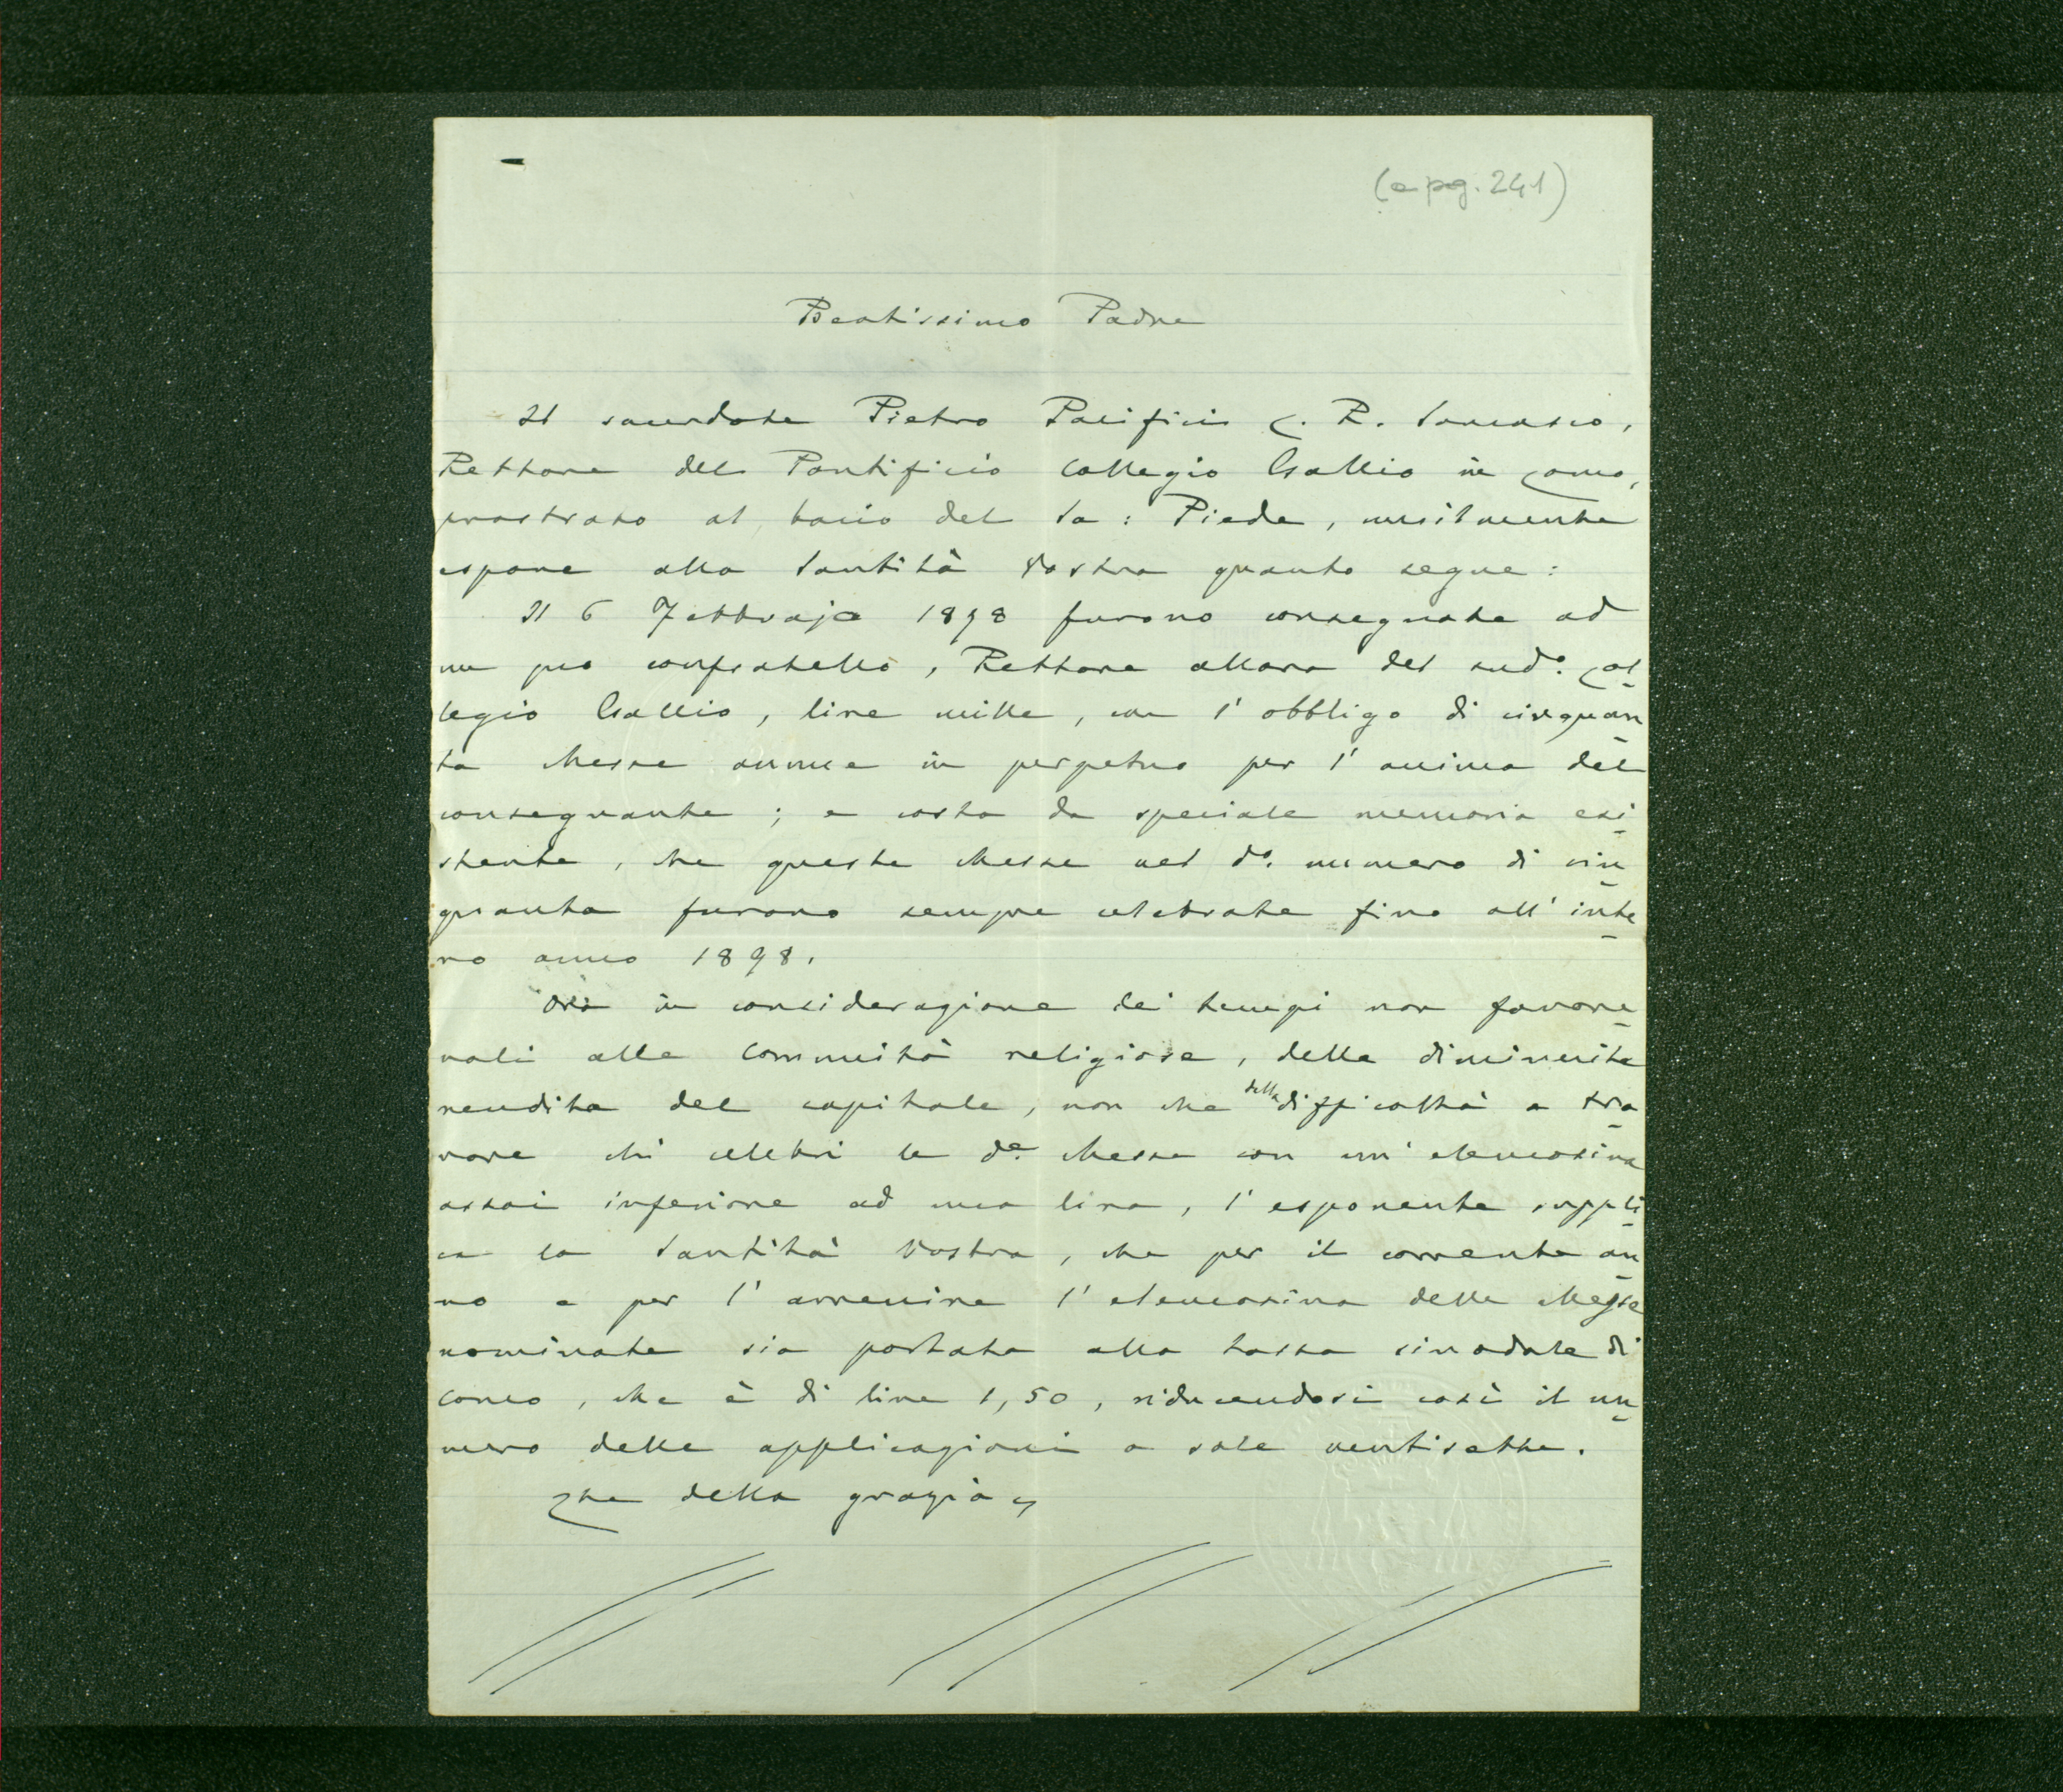 (a pg. 241)
Beatissimo Padre
Il sacerdote Pietro Pacifici C. R. Somasco,
Rettore del Pontificio Collegio Gallio in Como,
prostrato al bacio del So: Piede, umilmente
espone alla Santità Vostra quanto segue:
Il 6 Febbrajo 1898 furono consegnate ad
un pio confratello, Rettore allora del sudo. Col
legio Gallio, lire mille, con l'obbligo di cinquan
ta Messe annue in perpetuo per l'anima del
consegnante; e costa da speciale memoria esi
stente, che queste Messe nel do. numero di cin
quanta furono sempre celebrate fino all'inte
ro anno 1898.
Ora in considerazione dei tempi non favore
voli alle Comunità religiose, della diminuita
rendita del capitale, non che della difficoltà a tro
vare chi celebri le de. Messe con un'elemosina
assai inferiore ad una lira, l'esponente suppli
ca la Santità Vostra, che per il corrente an
no e per l'avvenire l'elemosina delle Messe
nominate sia portata alla tassa sinodale di
Como, che è di lire 1,50, riducendosi così il nu
mero delle applicazioni a sole ventisette.
Che della grazia